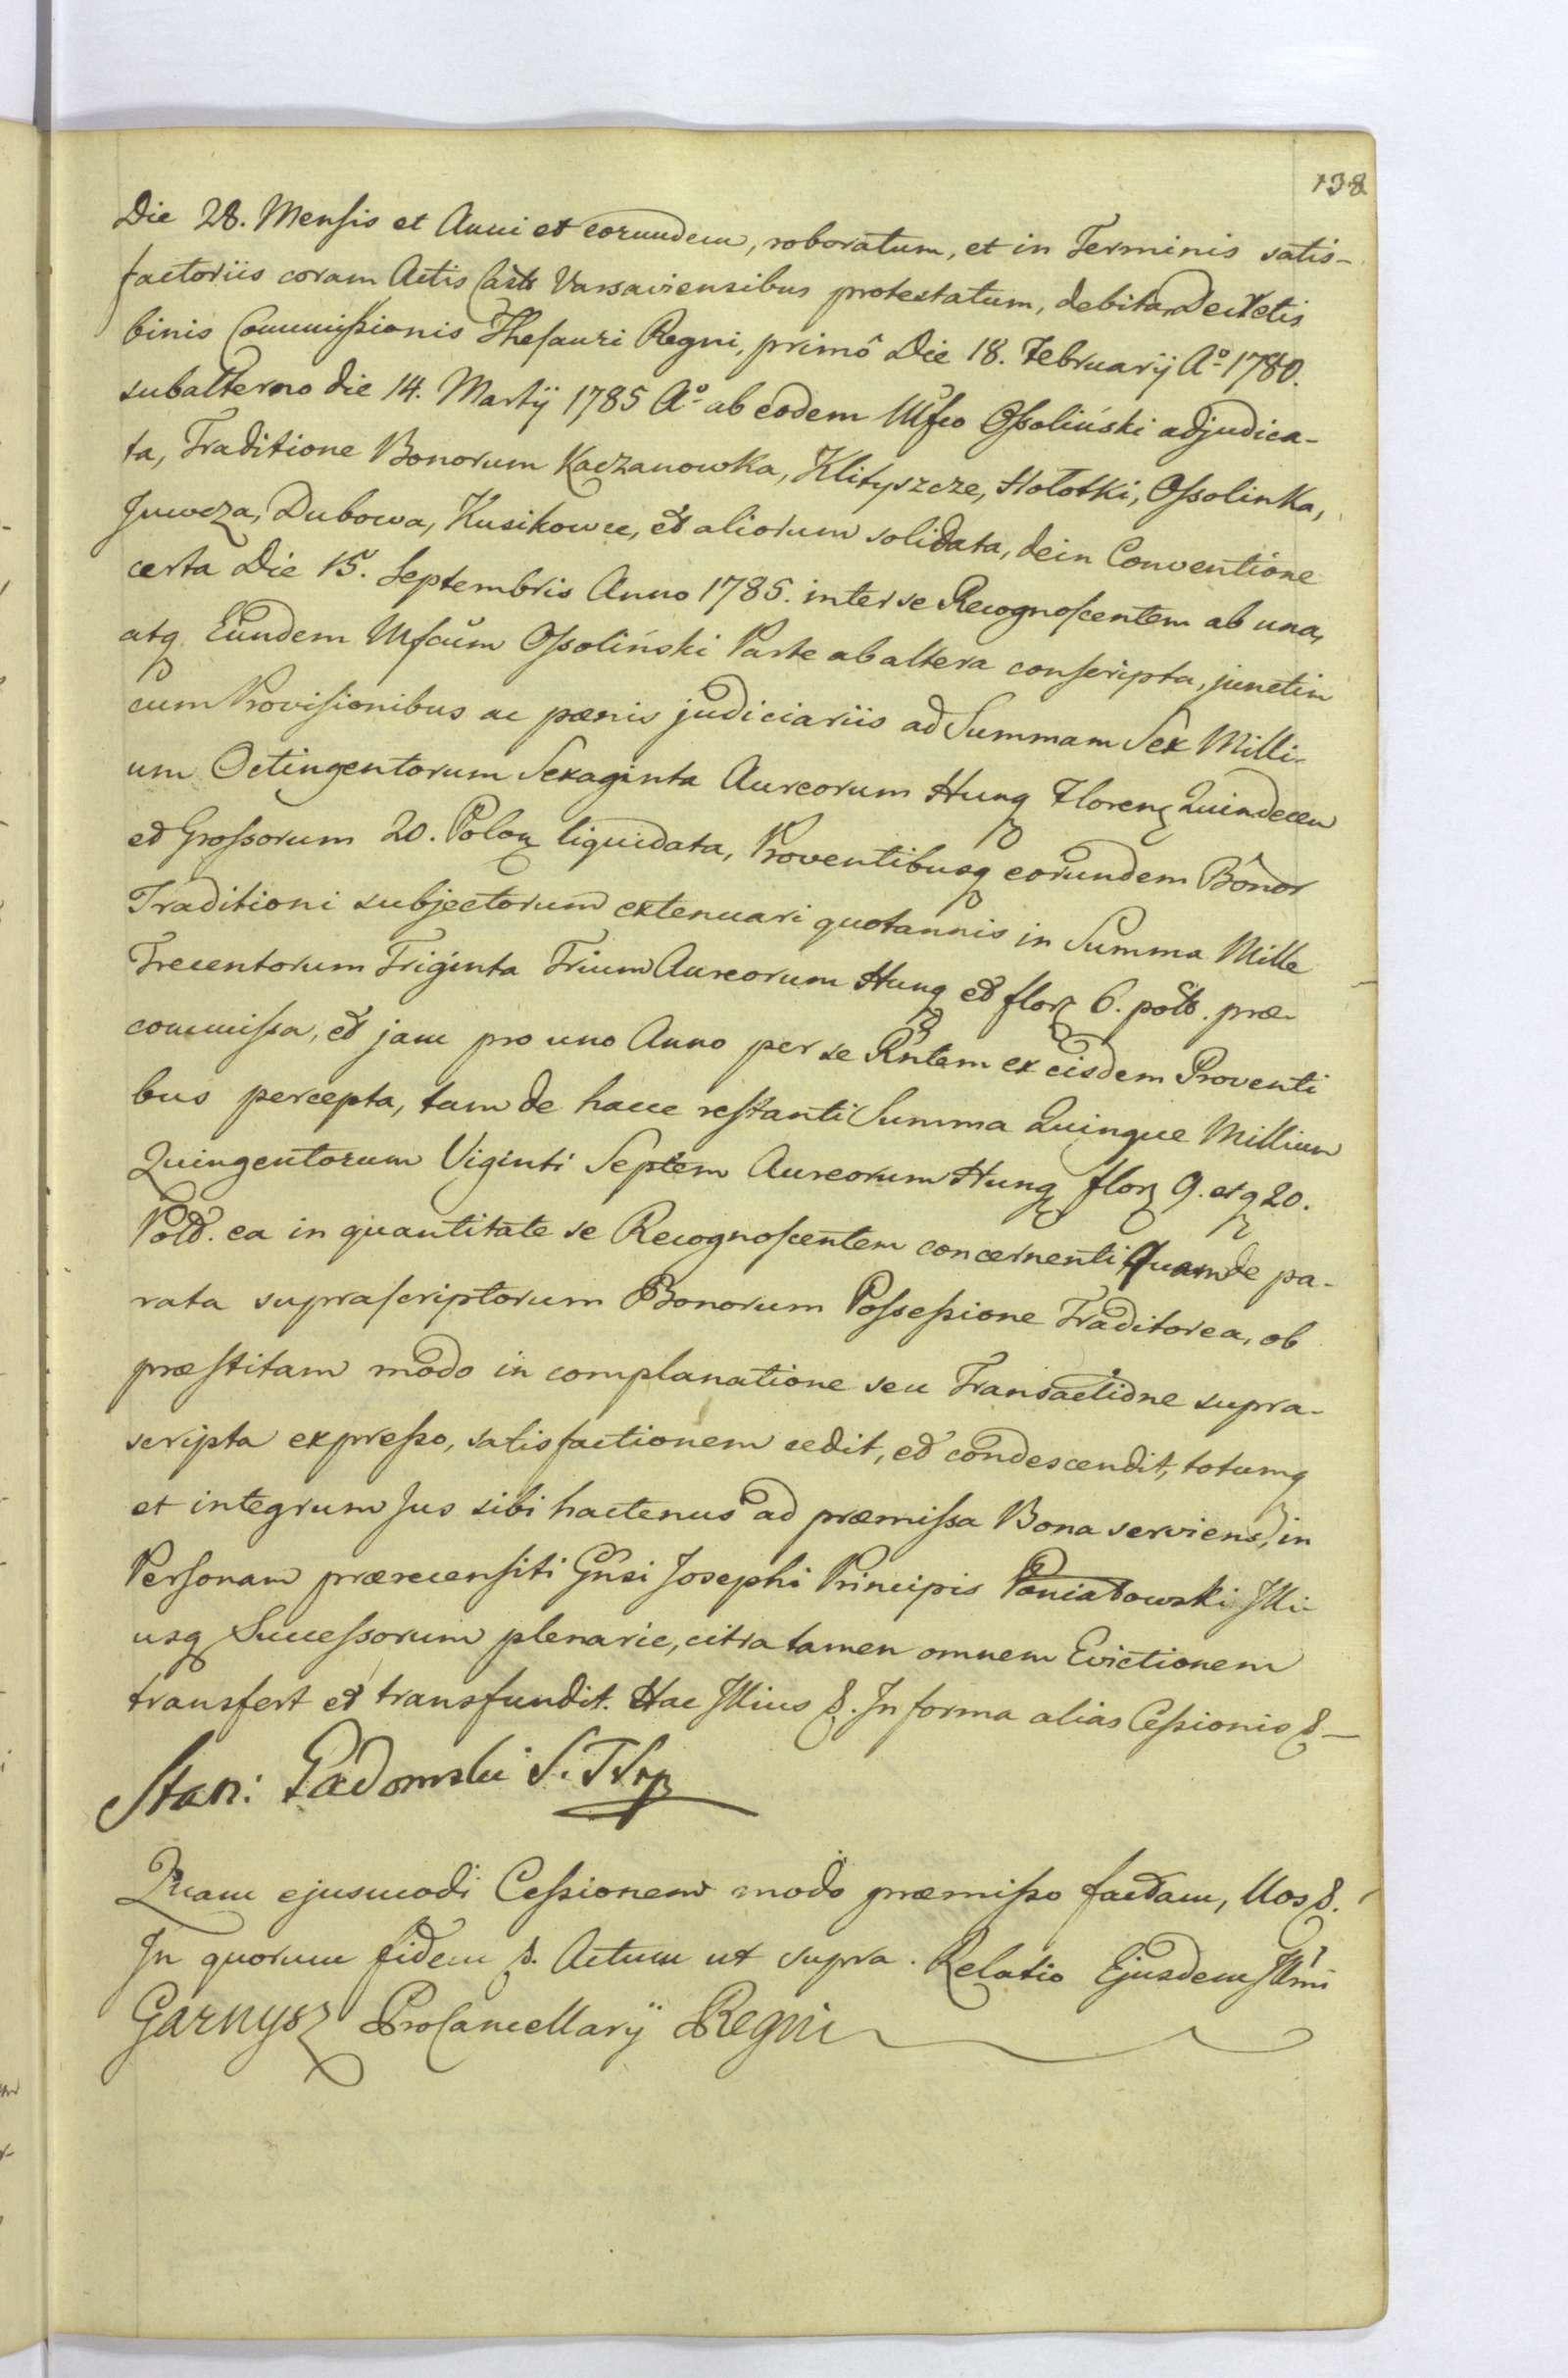 138
Die 28. Mensis et Anni et eorundem, roboratum, et in Terminis satis-
factoriis coram Actis Casts Varsaviensibus protestatum, debita, Decretis
binis Commissionis Thesauri Regni, primô Die 18. Februarij Aº 1780.
subalterno die 14. Martij 1785 Aº ab eodem Mfco Ossoliński adjudica-
ta, Traditione Bonorum Kaczanowka, Klityszcze, Hołotki, Ossolinka,
Juwcza, Dubowa, Kusikowce, et aliorum solidata, dein Conventione
certa Die 15. Septembris Anno 1785. inter se Recognoscentem ab una,
atq Eundem Mfcum Ossoliński Parte ab altera conscripta, junctim
cum Provisionibus ac pœnis judiciariis ad Summam Sex Milli-
um Octingentorum Sexaginta Aureorum Hung Floren Quindecem
et Grossorum 20. Polon liquidata, Proventibusq eorundem Bonor
Traditioni subjectorum extenuari quotannis in Summa Mille
Trecentorum Triginta Trium Aureorum Hung et flor 6. polb. præ-
commissa, et jam pro uno Anno per se Rntem ex eisdem Proventi
bus percepta, tam de hacce restanti Summa Quinque Millium
Quingentorum Viginti Septem Aureorum Hung flor 9. et g 20.
Pold. ea in quantitate se Recognoscentem concernenti Quam de pa-
rata suprascriptorum Bonorum Possessione Traditorea, ob
præstitam modo in complanatione seu Transactione supra-
scripta expresso, satisfactionem cedit, et condescendit, totumq
et integrum Jus sibi hactenus ad præmissa Bona serviens, in
Personam prærecensiti Gnsi Josephi Principis Poniatowski Illi-
usq Successorum plenarie, citra tamen omnem Evictionem
transfert et transfundit. Hac Illius &. In forma alias Cessionis &
Stan: Gadomski
Quam ejusmodi Cessionem modo præmisso factam, Nos &.
In quorum fidem &. Actum ut supra. Relatio Ejusdem Illmi
Garnysz ProCancellarij Regni